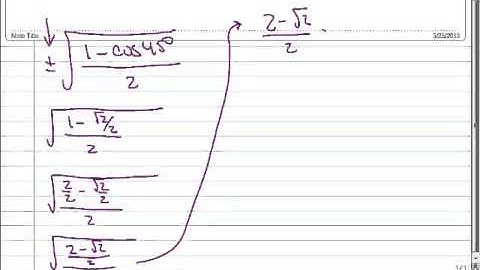 Note Title
3/25/2013
± √((1 - cos 45°)/2)
√((1 - √2/2)/2)
√((2/2 - √2/2)/2)
√((2 - √2)/2
(2 - √2)/2 ·
1/1